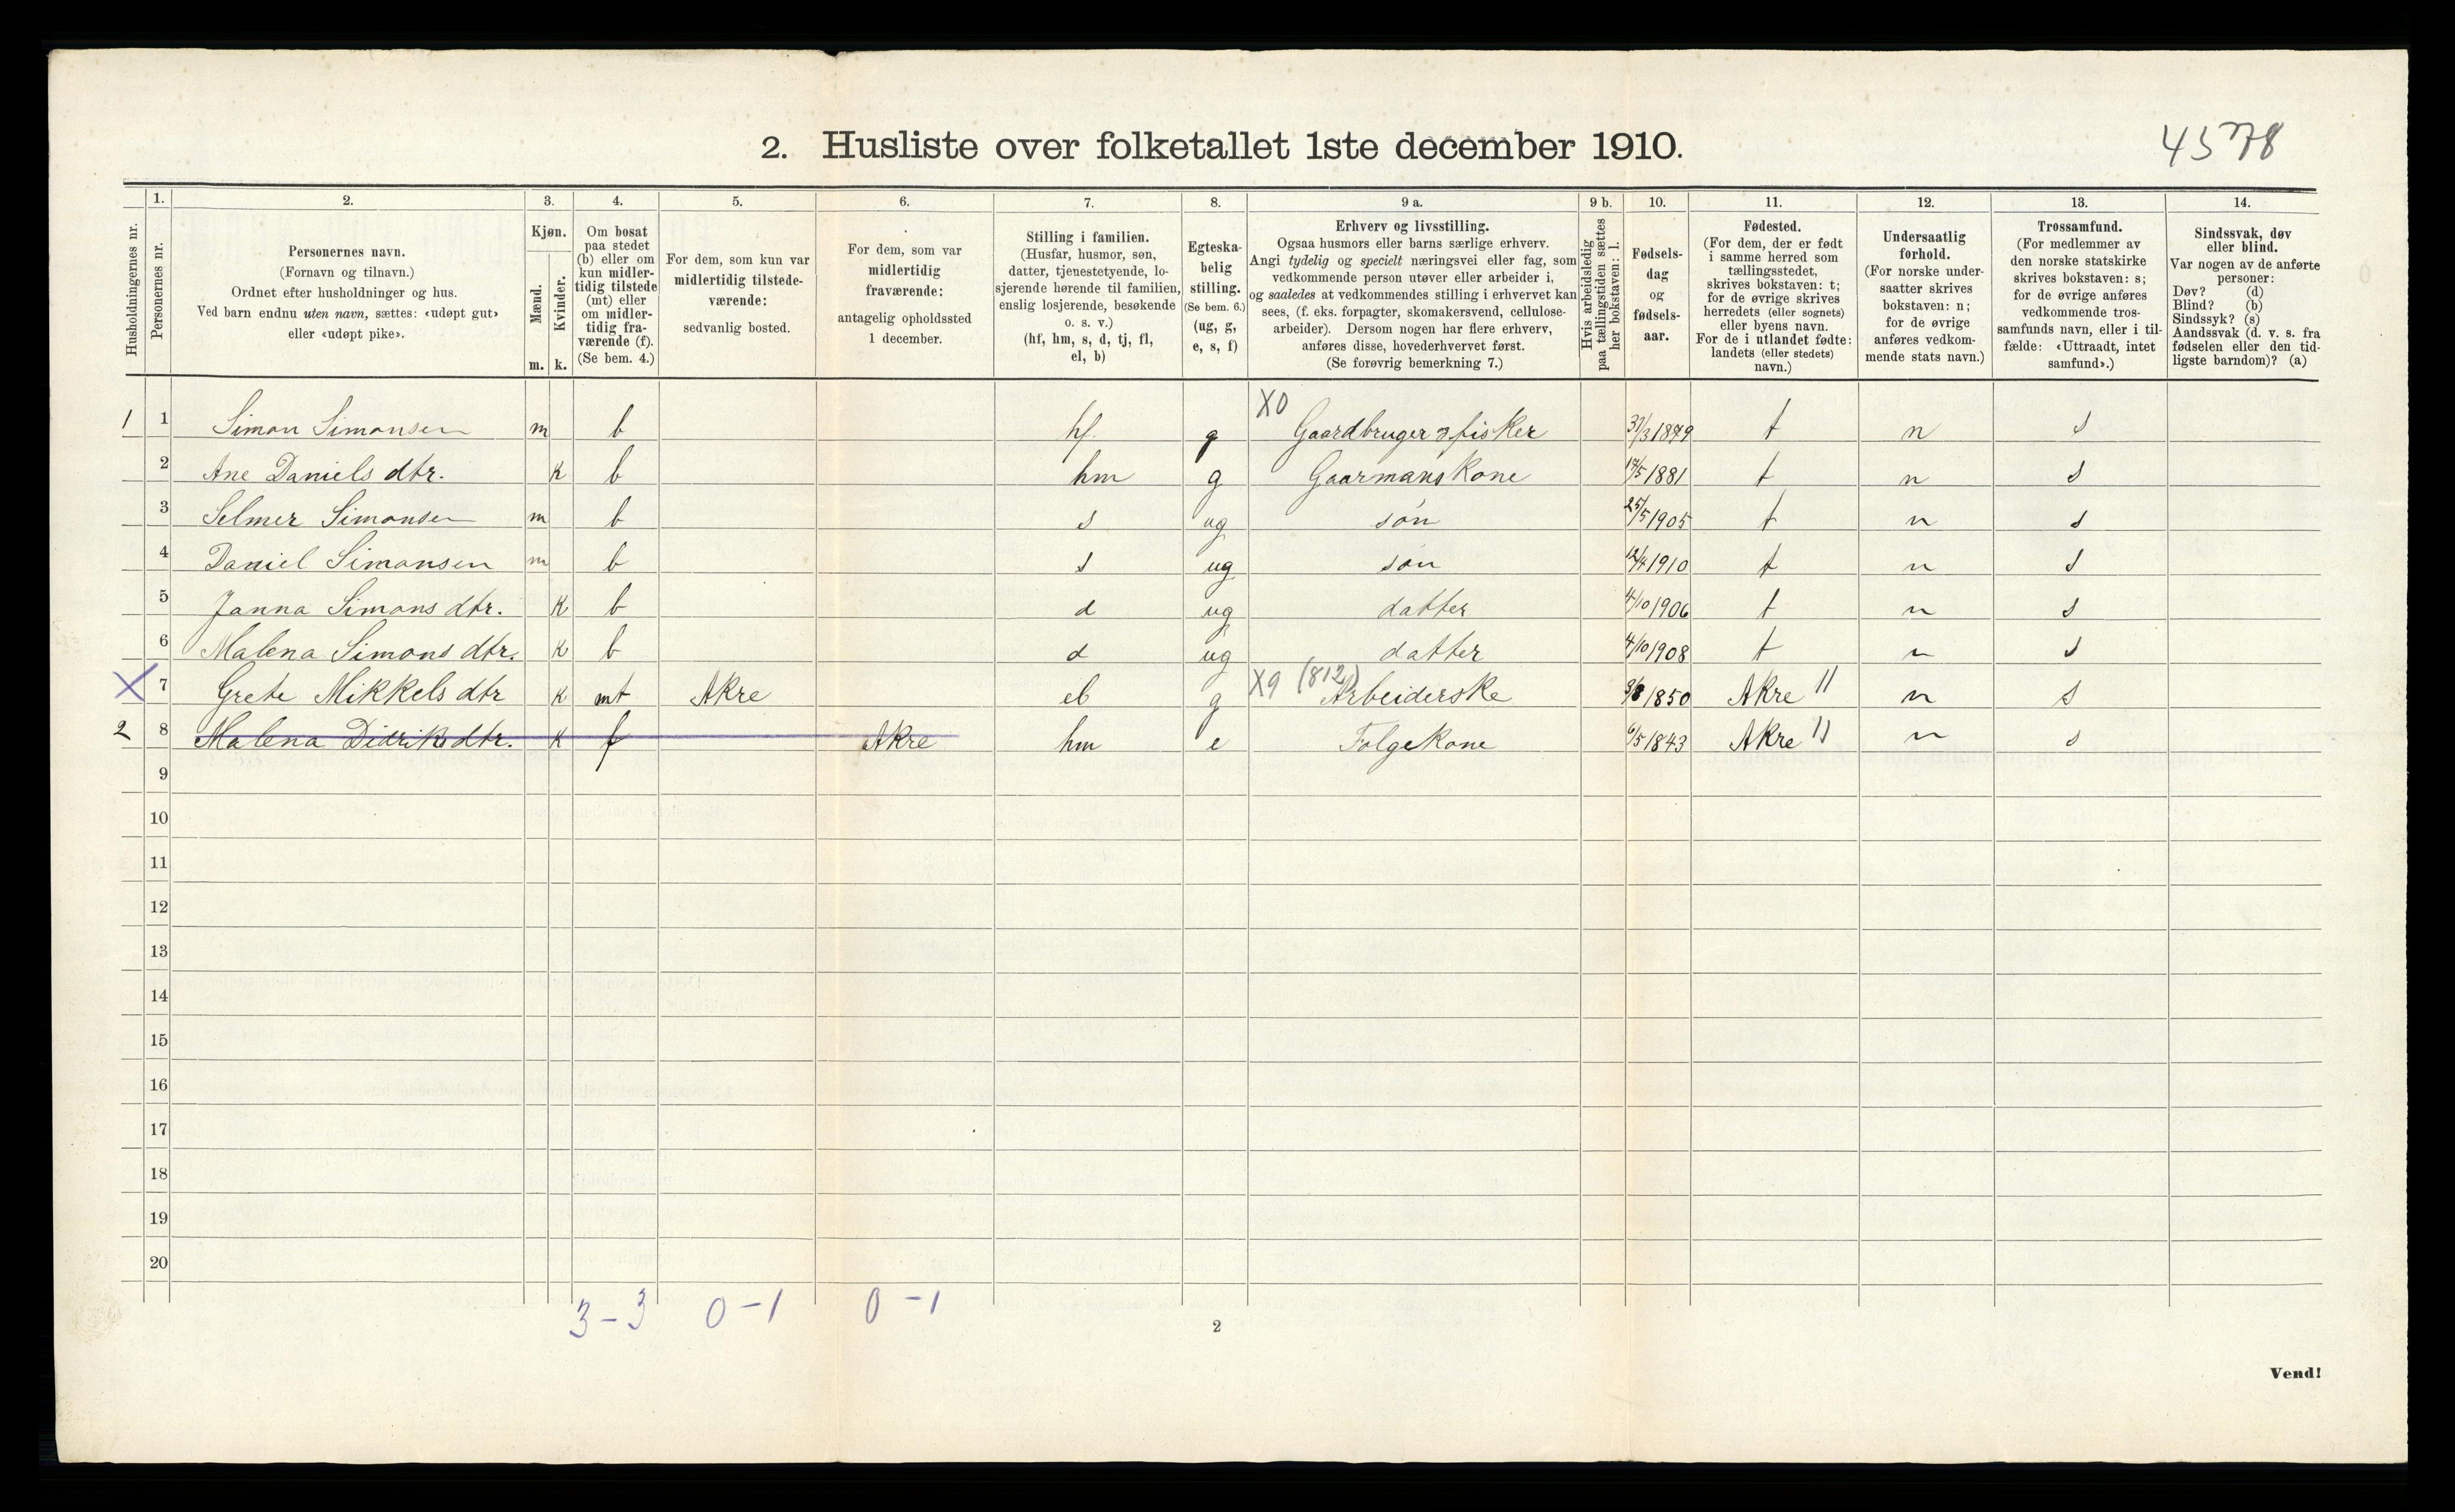 2. Husliste over folketallet 1ste december 1910.
4578
Husholdningernes nr.
1.
Personernes nr.
2.
Personernes navn.
(Fornavn og tilnavn.)
Ordnet efter husholdninger og hus.
Ved barn endnu uten navn, sættes: «udøpt gut»
eller «udøpt pike».
3.
Kjøn.
Mænd.
Kvinder.
m. k.
4.
Om bosat
paa stedet
(b) eller om
kun midler-
tidig tilstede
(mt) eller
om midler-
tidig fra-
værende (f).
(Se bem. 4.)
5.
For dem, som kun var
midlertidig tilstede-
værende:
sedvanlig bosted.
6.
For dem, som var
midlertidig
fraværende:
antagelig opholdssted
1 december.
7.
Stilling i familien.
(Husfar, husmor, søn,
datter, tjenestetyende, lo-
sjerende hørende til familien,
enslig losjerende, besøkende
o. s. v.)
(hf, hm, s, d, tj, fl,
el, b)
8.
Egteska-
belig
stilling.
(Se bem. 6.)
(ug, g,
e, s, f)
9 a.
Erhverv og livsstilling.
Ogsaa husmors eller barns særlige erhverv.
Angi tydelig og specielt næringsvei eller fag, som
vedkommende person utøver eller arbeider i,
og saaledes at vedkommendes stilling i erhvervet kan
sees, (f. eks. forpagter, skomakersvend, cellulose-
arbeider). Dersom nogen har flere erhverv,
anføres disse, hovederhvervet først.
(Se forøvrig bemerkning 7.)
9 b.
Hvis arbeidsledig
paa tællingstiden sættes
her bokstaven: l.
10.
Fødsels-
dag
og
fødsels-
aar.
11.
Fødested.
(For dem, der er født
i samme herred som
tællingsstedet,
skrives bokstaven: t;
for de øvrige skrives
herredets (eller sognets)
eller byens navn.
For de i utlandet fødte:
landets (eller stedets)
navn.)
12.
Undersaatlig
forhold.
(For norske under-
saatter skrives
bokstaven: n;
for de øvrige
anføres vedkom-
mende stats navn.)
13.
Trossamfund.
(For medlemmer av
den norske statskirke
skrives bokstaven: s;
for de øvrige anføres
vedkommende tros-
samfunds navn, eller i til-
fælde: «Uttraadt, intet
samfund».)
14.
Sindssvak, døv
eller blind.
Var nogen av de anførte
personer:
Døv? (d)
Blind? (b)
Sindssyk? (s)
Aandssvak (d. v. s. fra
fødselen eller den tid-
ligste barndom)? (a)
X0
1 1 Simon Simonsen m b hf. g Gaardbruger & fisker 31/3 1879 t n s
2 Ane Daniels dtr. k b hm g Gaarmans kone 17/5 1881 t n s
3 Selmer Simonsen m b s ug søn 25/5 1905 t n s
4 Daniel Simonsen m b s ug søn 12/4 1910 t n s
5 Janna Simons dtr. k b d ug datter 4/10 1906 t n s
6 Malena Simons dtr. k b d ug datter 4/10 1908 t n s
X9 (812)
X 7 Grete Mikkels dtr k mt Akre el g Arbeiderske 1850 Akre 11 n s
2 8 Malena Didriks dtr. k f Akre hm e Folgekone 6/5 1843 Akre 11 n s
9
10
11
12
13
14
15
16
17
18
19
20
3-3 0-1 0-1
2
Vend!